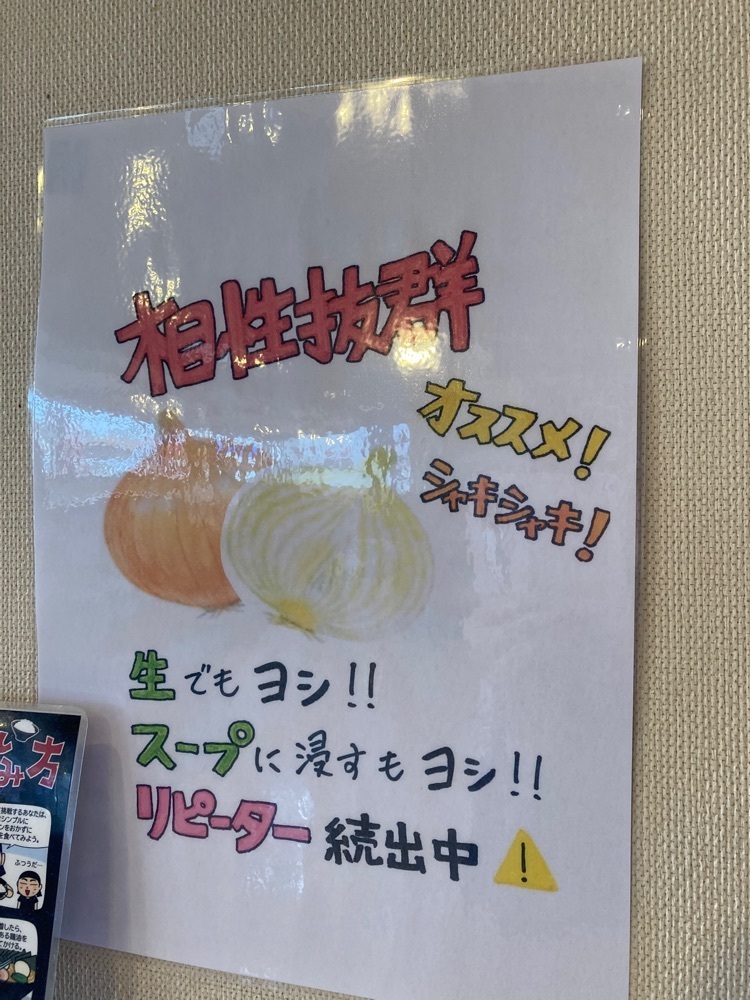 相性抜群
オススメ!
シャキシャキ!
生でもヨシ!!
スープに浸すもヨシ!!
リピーター続出中
方
挑戦するあなたは、
シンプルに
ンをおかずに
を食べてみよう。
ふつうだ…
したら、
ある醤油を
てかける。